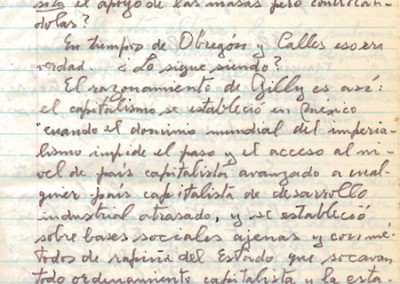 solo el apoyo de las masas pero controlán-
dolas?
En tiempos de Obregón y Calles eso era
verdad. ¿Lo sigue siendo?
El razonamiento de Gilly es así:
el capitalismo se estableció en México
"cuando el dominio mundial del imperia-
lismo impide el paso y el acceso al ni-
vel de país capitalista avanzado a cual-
quier país capitalista de desarrollo
industrial atrasado, y se estableció
sobre bases sociales ajenas y con mé-
todos de rapiña del Estado que socavan
todo ordenamiento capitalista y la esta-